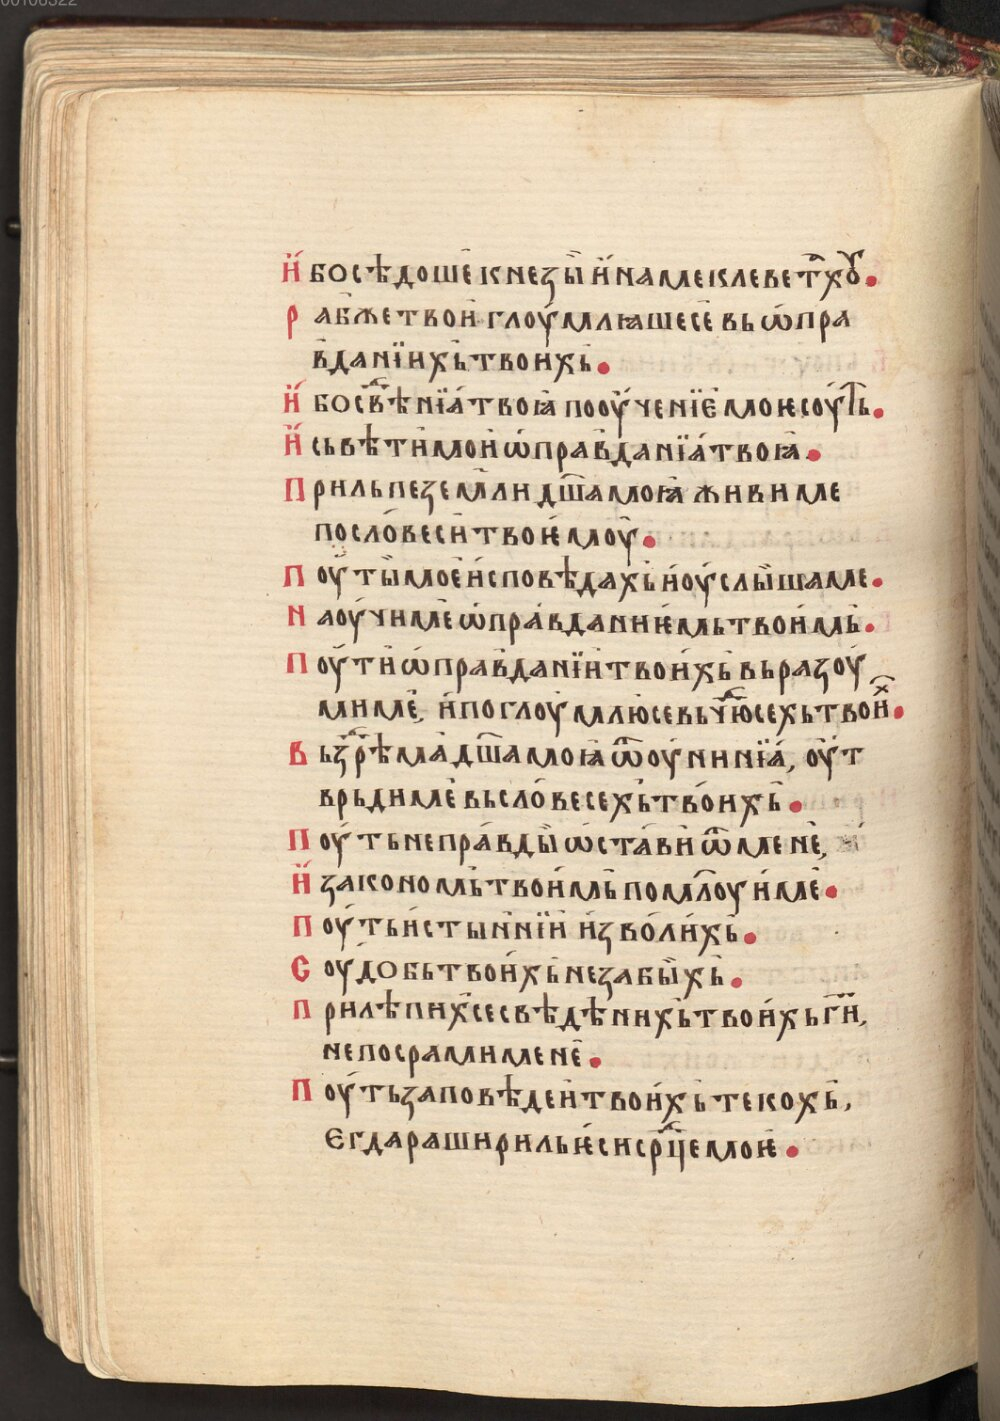 00106322
И҆ боседоше кнезы̏ и҆ на ме клевет҃ахꙋ.
Рабже твои глоу́млꙗше се вь ѡ҆пра
вданїихь твоихь.
И҆ бо свⷣѣнїа́ твоꙗ поо́учѐнїе мокѥ соу́ть.
И҆ сьвѣти мои ѡ҆правданїа́ твоꙗ.
Прильпе земли дш҃а моꙗ живи ме
по словеси твоѥ́моу.
Поу́ты мое и҆сповѣдахь и҆ оу҆слыша ме.
Наоу́чи ме ѡ҆пра́вданиѥмь твои́мь.
Поу́ти ѡ҆правданїи твои́хь вьразоу́
ми ме, и҆ поглоумлю́ се вь чюⷣсехь твоиⷯ.
Вьзⷣрѣма дш҃а моꙗ ѿ оунинїа́, оу́т
врьди ме вь слове́сехь твои́хь.
Поу́ть непра́вды ѡ҆ста́ви ѿ мене,
И҆ закономь твои́мь помл҃оуи́ ме.
Поу́ть и҆стыннїи и҆зво́ли́хь.
Соу́добь твои́хь не забы̏хь.
Прилѣпихⷭ се свѣдѣнихь твои́хь гй҃,
не посрами мене.
Поу́ть заповѣдеи твои́хь текохь,
Єгда раширилькѥси срⷣце мокѥ.